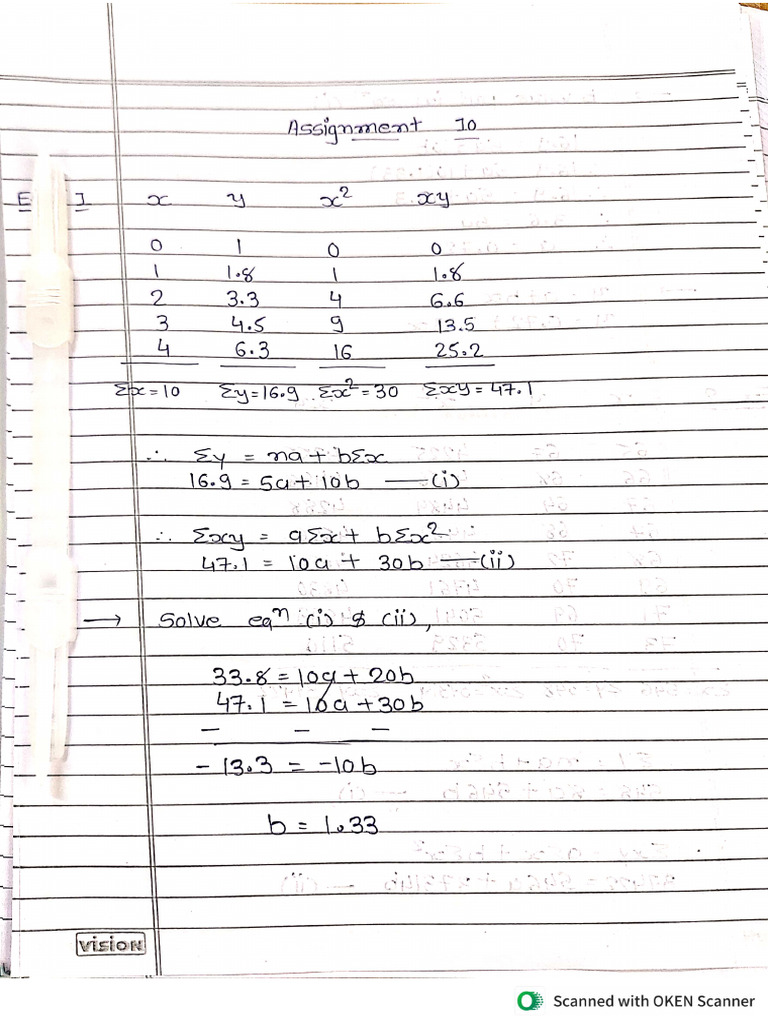 Assignment 10
E 1 x y x² xy
0 1 0 0
1 1.8 1 1.8
2 3.3 4 6.6
3 4.5 9 13.5
4 6.3 16 25.2
Σx=10 Σy=16.9 Σx²=30 Σxy=47.1
∴ Σy = na + bΣx
16.9 = 5a + 10b —(i)
∴ Σxy = aΣx + bΣx²
47.1 = 10a + 30b —(ii)
→ Solve eqⁿ (i) & (ii),
33.8 = 10a + 20b
47.1 = 10a + 30b
− − −
- 13.3 = -10b
b = 1.33
VISION
Scanned with OKEN Scanner